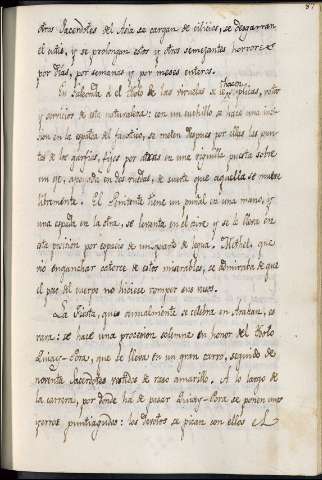 87
otros Sacerdotes del Asia se cargan de cilicios, se desgarran
el cutis, y se prolongan estos y otros semejantes horrores
por días, por semanas y por meses enteros.
En Calcuta á el Ídolo de las viruelas se le hacen suplicas, votos
y sacrificios de esta naturaleza: con un cuchillo se hace una inci-
sion en la espalda del fanatico, se meten despues por ellas las pun-
tas de los garfios, fijos por atras en una viguilla puesta sobre
un eje, apoyada en dos ruedas, de suerte que aquella se mueve
libremente. El Penitente tiene un puñal en una mano, y
una espada en la otra, se levanta en el aire y se le lleva en
esta posicion por espacio de un quarto de legua. Michel, que
vio enganchar catorce de estos miserables, se admiraba de que
el peso del cuerpo no hiciese romper sus
La Fiesta, que annualmente se celebra en Arakan, es
rara: se hace una procesion solemne en honor del Ídolo
Quiay-Pora, que se lleva en un gran carro, seguido de
noventa Sacerdotes vestidos de raso amarillo. A lo largo de
la carrera, por donde ha de pasar Quiay-Pora se ponen unos
yerros puntiagudos: los devotos se pican con ellos